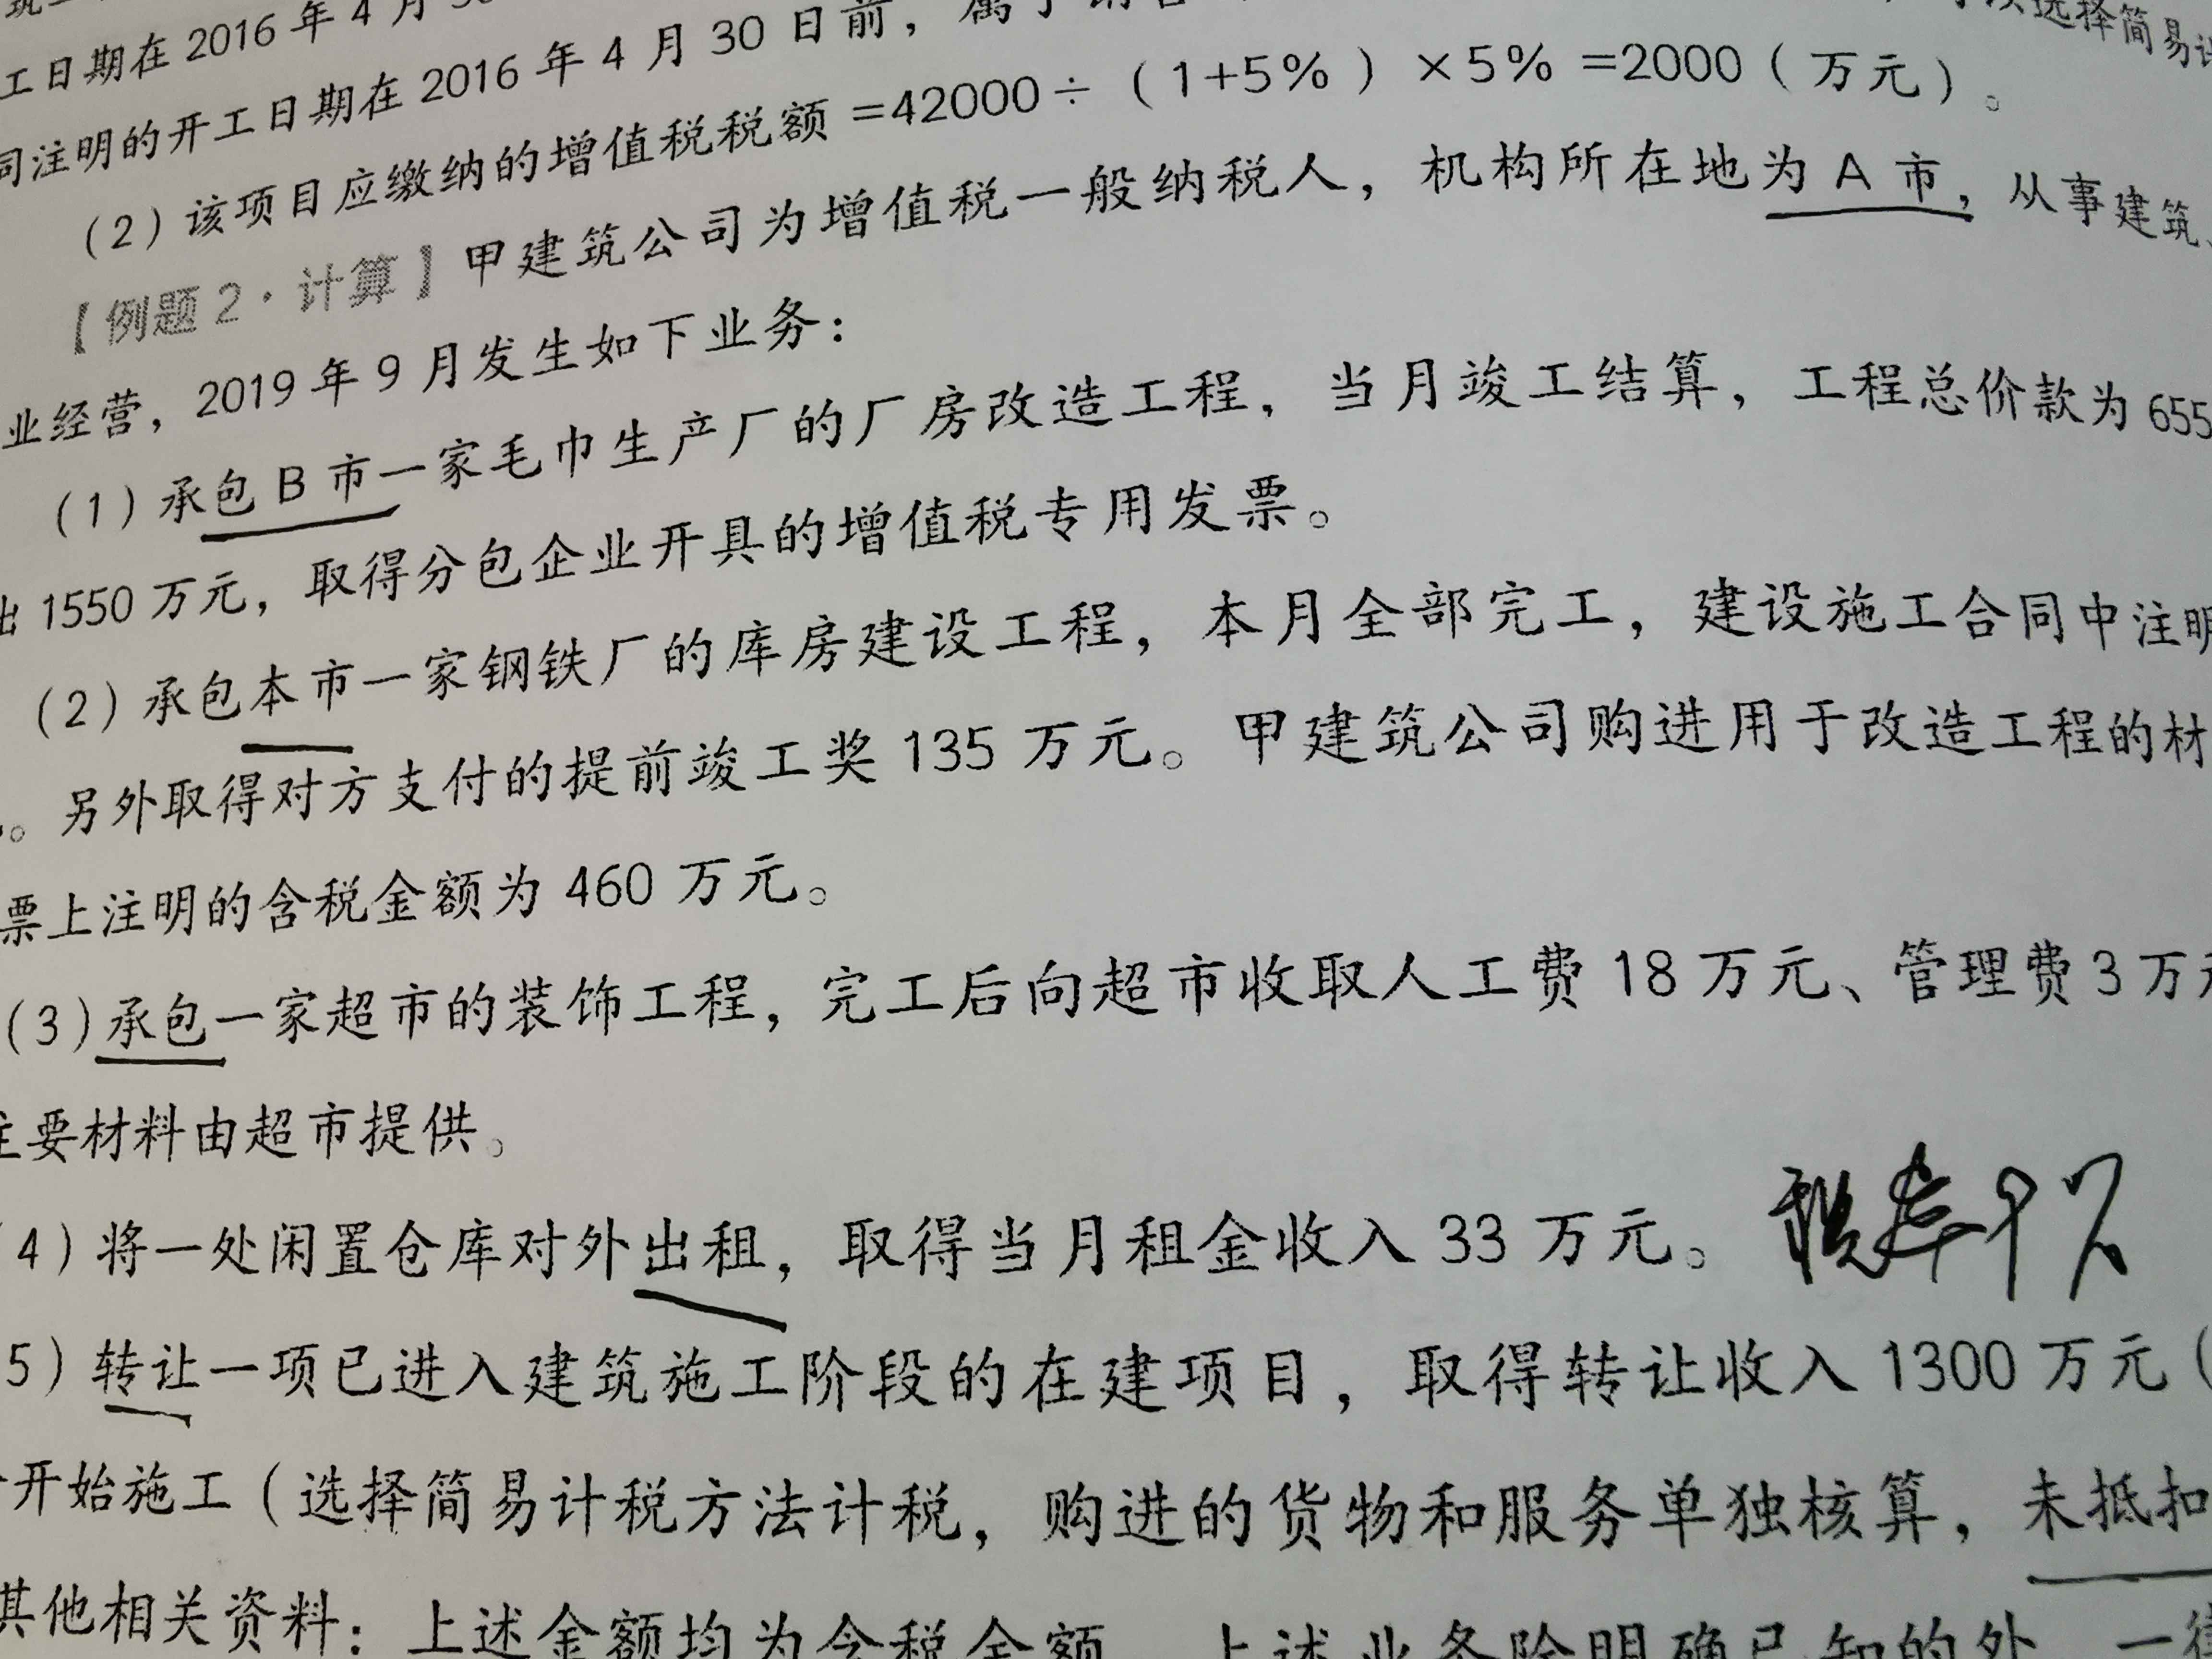 工日期在 2016 年 4 月
同注明的开工日期在 2016 年 4 月 30 日前，属于
选择简易
（2）该项目应缴纳的增值税税额 =42000÷（1+5%）×5% =2000（万元）。
【例题 2·计算】甲建筑公司为增值税一般纳税人，机构所在地为 A 市，从事建筑、
业经营，2019 年 9 月发生如下业务：
（1）承包 B 市一家毛巾生产厂的厂房改造工程，当月竣工结算，工程总价款为 655
出 1550 万元，取得分包企业开具的增值税专用发票。
（2）承包本市一家钢铁厂的库房建设工程，本月全部完工，建设施工合同中注明
。另外取得对方支付的提前竣工奖 135 万元。甲建筑公司购进用于改造工程的材
票上注明的含税金额为 460 万元。
（3）承包一家超市的装饰工程，完工后向超市收取人工费 18 万元、管理费 3 万元
主要材料由超市提供。
4）将一处闲置仓库对外出租，取得当月租金收入 33 万元。 税率9%
5）转让一项已进入建筑施工阶段的在建项目，取得转让收入 1300 万元（
开始施工（选择简易计税方法计税，购进的货物和服务单独核算，未抵扣
其他相关资料：上述金额均为含税金额，上述业务除明确已知的外，一律